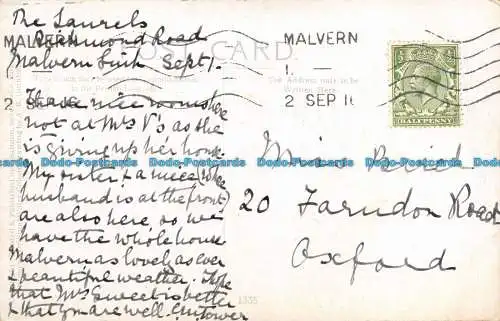 The Laurels
Richmond Road
Malvern Link Sept 1.
POST CARD.
MALVERN
MALVERN
2 SEP 16
The Address only to be
Written Here.
HALFPENNY
I have nice rooms here
not at Mrs V's as she
is giving up her house.
My sister & a niece (whose
husband is at the front)
are also here so we
have the whole house
Malvern as lovely as ever
& beautiful weather. I hope
that Mrs Sweet is better
& that you are well.
Miss Beird
20 Farndon Road
Oxford
1335
Dodo-Postcards Dodo-Postcards Dodo-Postcards Dodo-Postcards Dodo-Postcards Dodo-Postcards
Dodo-Postcards Dodo-Postcards Dodo-Postcards Dodo-Postcards Dodo-Postcards Dodo-Postcards